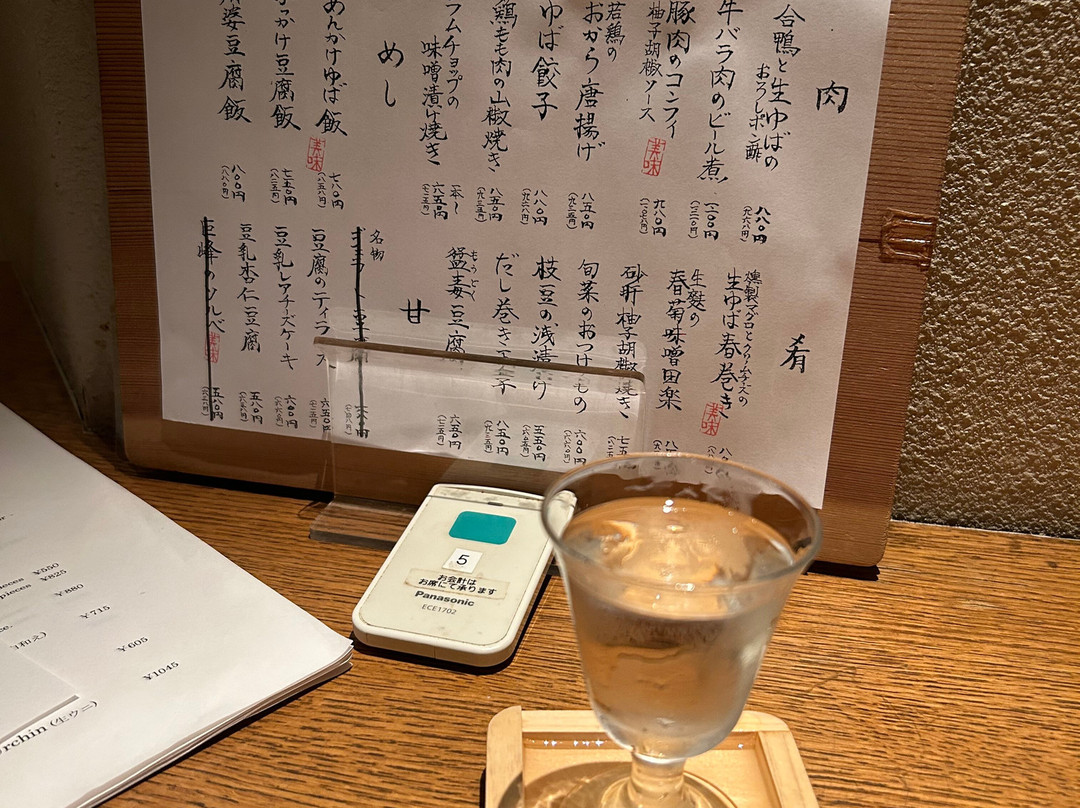 肉
合鴨と生ゆばの
おろしポン酢
八八〇円
(九六八円)
牛バラ肉のビール煮
豚肉のコンフィ
柚子胡椒ソース
美味
九八〇円
若鶏の
おから唐揚げ
八五〇円
(九三五円)
ゆば餃子
八八〇円
(九六八円)
鶏もも肉の山椒焼き
八五〇円
(九三五円)
ラムチョップの
味噌漬け焼き
一本〜
六五〇円
(七一五円)
めし
あんかけゆば飯
美味
七八〇円
(八五八円)
ぶっかけ豆腐飯
七五〇円
(八二五円)
麻婆豆腐飯
八〇〇円
(八八〇円)
肴
燻製マグロとクリームチーズの
生ゆば春巻き
美味
生麩の
春菊味噌田楽
砂肝柚子胡椒焼き
旬菜のおつけもの
六〇〇円
(六六〇円)
枝豆の浅漬け
五五〇円
(六〇五円)
だし巻き玉子
八五〇円
(九三五円)
もうどく
猛毒豆腐
六五〇円
(七一五円)
甘
名物
豆腐のティラミス
六五〇円
(七一五円)
豆乳レアチーズケーキ
六〇〇円
(六六〇円)
豆乳杏仁豆腐
五八〇円
巨峰のソルベ
美味
五八〇円
5
お会計は
お席にて承ります
Panasonic
ECE1702
¥550
pieces ¥825
¥880
¥715
和え)
¥605
¥1045
rchin (生ウニ)